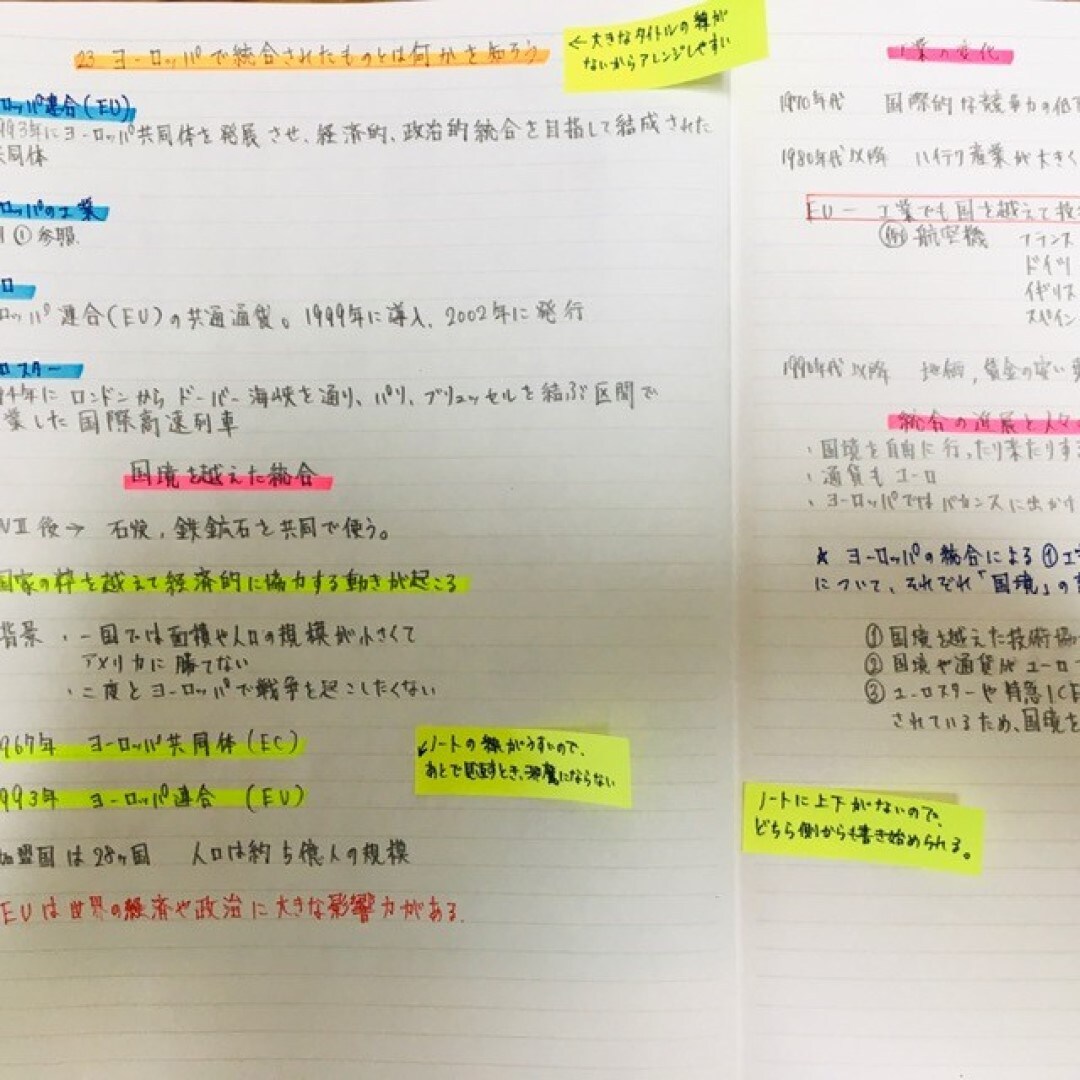 23 ヨーロッパで統合されたものとは何かを知ろう
←大きなタイトルの線が
ないからアレンジしやすい
ロッパ連合(EU)
993年にヨーロッパ共同体を発展させ、経済的、政治的統合を目指して結成された
共同体
ロッパの工業
①参照
ロ
ロッパ連合(EU)の共通通貨。1999年に導入、2002年に発行
ロスター
94年にロンドンからドーバー海峡を通り、パリ、ブリュッセルを結ぶ区間で
業した国際高速列車
国境を越えた統合
WⅡ後→ 石炭、鉄鉱石を共同で使う。
国家の枠を越えて経済的に協力する動きが起こる
背景・一国では面積や人口の規模が小さくて
アメリカに勝てない
・二度とヨーロッパで戦争を起こしたくない
967年 ヨーロッパ共同体(EC)
993年 ヨーロッパ連合 (EU)
↙ノートの線がうすいので、
あとで見直すとき、邪魔にならない
加盟国は28ヶ国 人口は約5億人の規模
EUは世界の経済や政治に大きな影響力がある。
工業の変化
1970年代 国際的な競争力の低下
1980年代以降 ハイテク産業が大きく
EU ー 工業でも国を越えて技
例 航空機 フランス
ドイツ
イギリス
スペイン
1990年代以降 地価、賃金の安い
統合の進展と人々
・国境を自由に行ったり来たりする
・通貨もユーロ
・ヨーロッパではバカンスに出かけ
★ ヨーロッパの統合による①工
について、それぞれ「国境」の
①国境を越えた技術協
②国境や通貨がユーロ
③ユーロスターや特急ICE
されているため、国境を
ノートに上下がないので、
どちら側からも書き始められる。